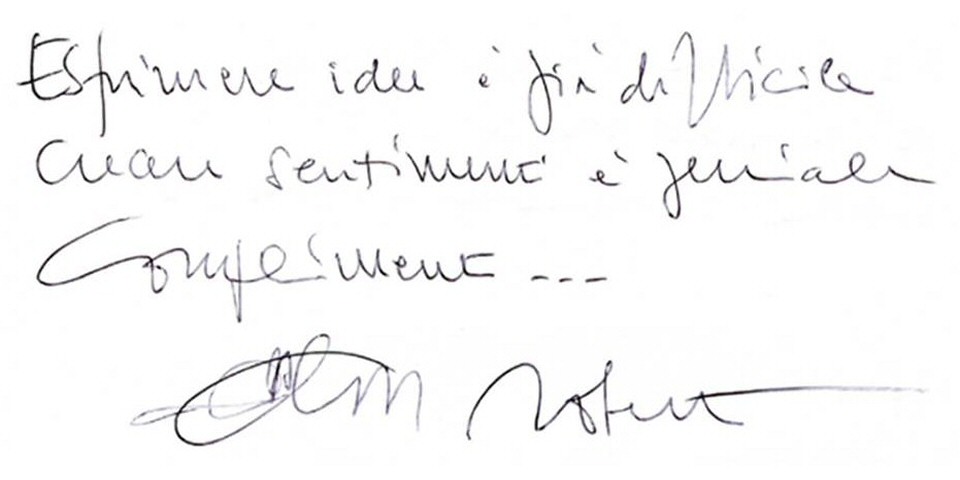 Esprimere idee è già difficile
creare sentimenti è geniale
Complimenti ---